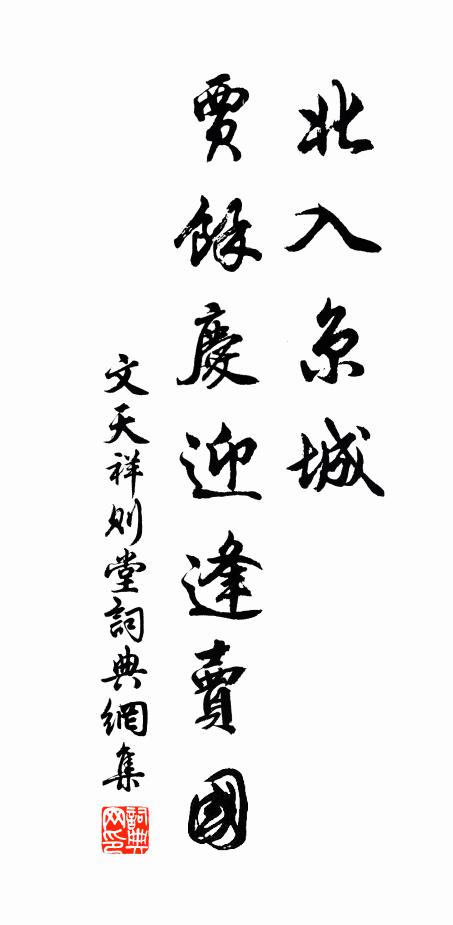 北入京城
賈餘慶迎逢賣國
文天祥則堂詞典網集
詞典
网印